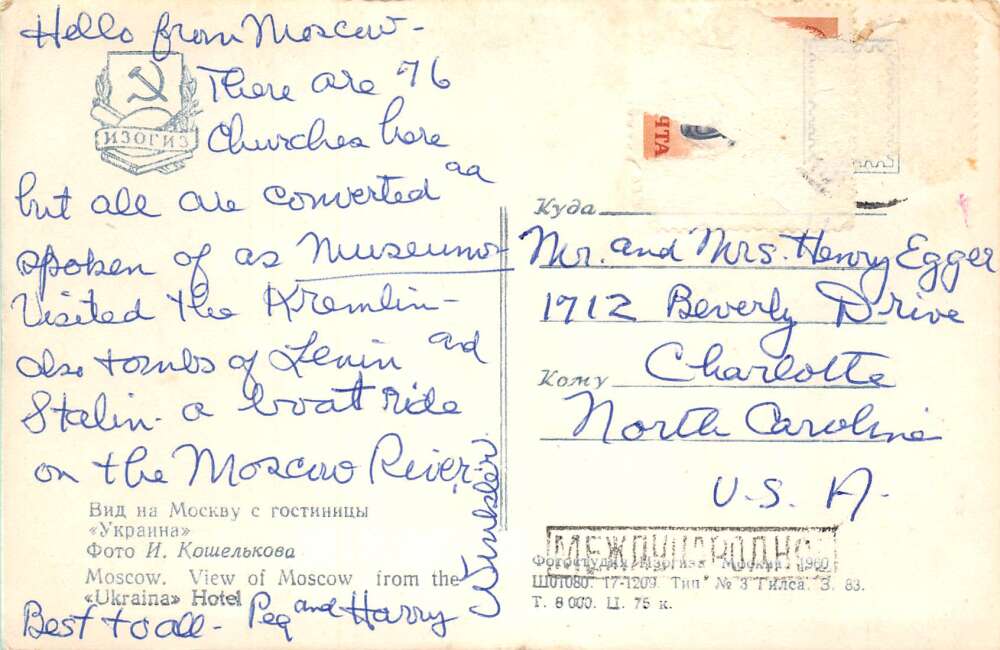 Hello from Moscow -
There are 76
Churches here
but all are converted aa
spoken of as Museums
Visited the Kremlin -
also tombs of Lenin and
Stalin - a boat ride
on the Moscow River,
Best to all - Peg and Harry
ИЗОГИЗ
Вид на Москву с гостиницы
«Украина»
Фото И. Кошелькова
Moscow. View of Moscow from the
«Ukraina» Hotel
ЧТА
Куда
Mr. and Mrs. Henry Egger
1712 Beverly Drive
Кому
Charlotte
North Carolina
U.S.A.
МЕЖДУНАРОДНО
Москва. 1960
Ш01080. 17-1209. Тип № 3 Гилса. З. 83.
Т. 8 000. Ц. 75 к.